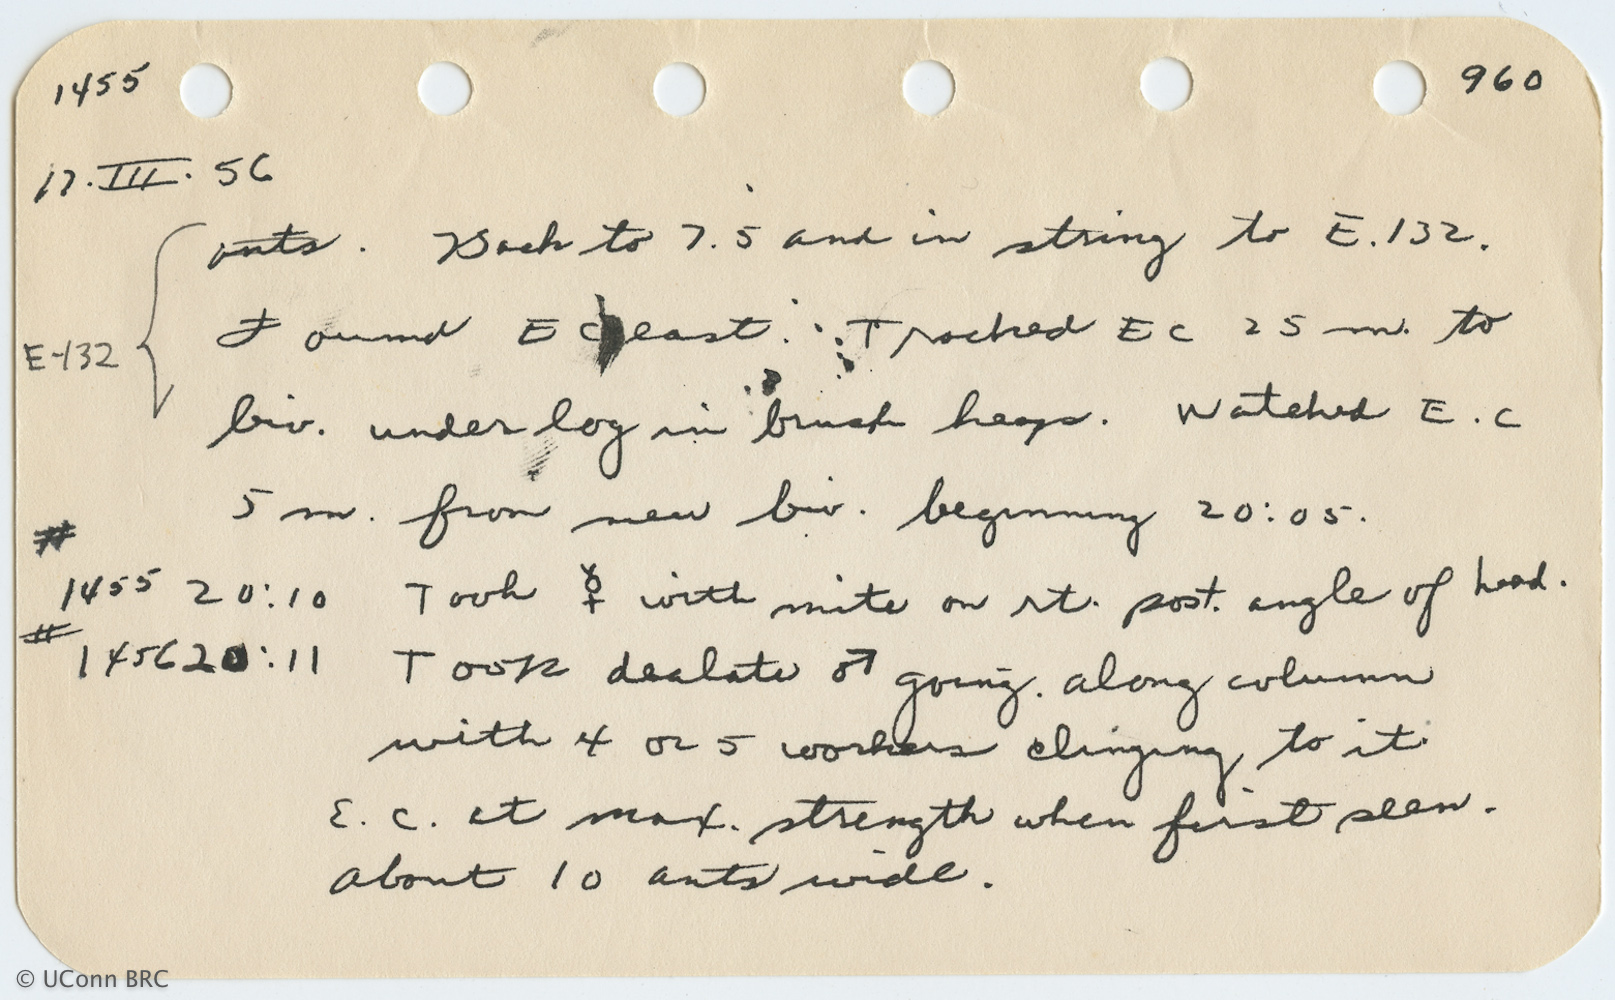 1455 960
17.III.56
ants. Back to 7.5 and in string to E.132.
Found EC east. Tracked EC 25 m. to
E-132
biv. under log in brush heap. Watched E.C
5 m. from new biv. beginning 20:05.
#
1455 20:10 Took ☿ with mite on rt. post. angle of head.
#
1456 20:11 Took dealate ♂ going along column
with 4 or 5 workers clinging to it
E.C. at max. strength when first seen.
About 10 ants wide.
© UConn BRC